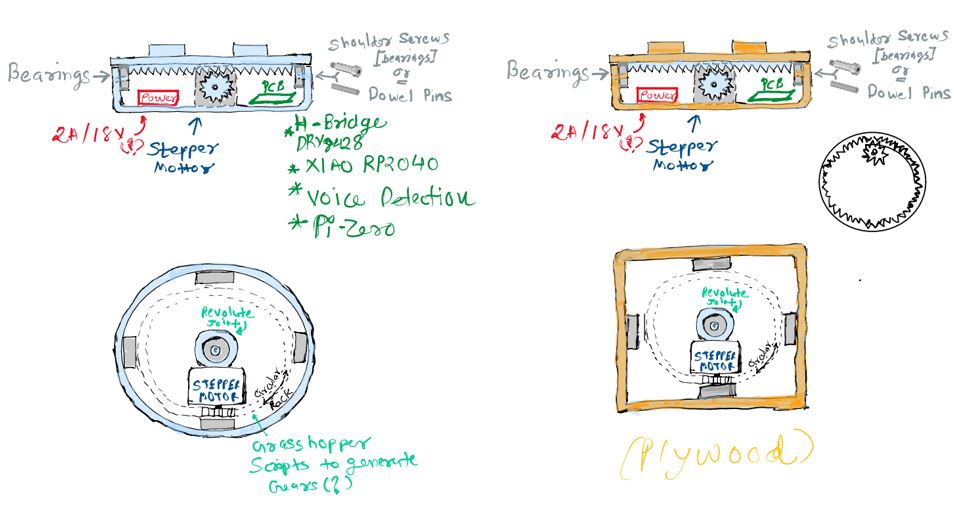 Shoulder Screws
[bearings]
or
Dowel Pins
Bearings
Power
PCB
2A/18V(?)
Stepper
Motor
* H-Bridge
* XIAO RP2040
* Voice Detection
* Pi-Zero
Revolute
Joint
STEPPER
MOTOR
Circular
Rack
Grasshopper
Scripts to generate
Gears(?)
Shoulder Screws
[bearings]
or
Dowel Pins
Bearings
Power
PCB
2A/18V(?)
Stepper
Motor
Revolute
Joint
STEPPER
MOTOR
Circular
(Plywood)